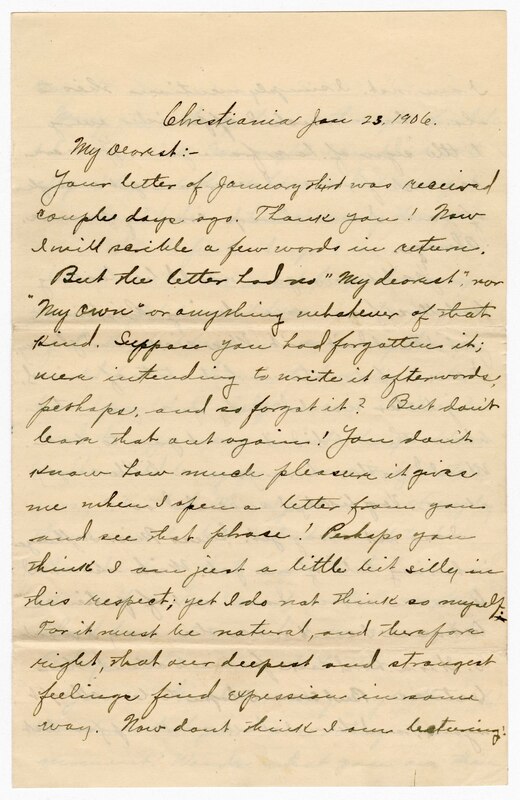 Christiania Jan 23, 1906.
My Dearest:-
Your letter of January third was received
couple days ago. Thank you! Now
I will scrible a few words in return.
But the letter had no "My dearest", nor
"My own" or anything whatever of that
kind. Suppose you had forgotten it;
were intending to write it afterwords,
perhaps, and so forgot it? But don't
leave that out again! You don't
know how much pleasure it gives
me when I open a letter from you
and see that phrase! Perhaps you
think I am just a little bit silly in
this respect; yet I do not think so myself;
For it must be natural, and therefore
right, that our deepest and strongest
feelings find expression in some
way. Now dont think I am lecturing!